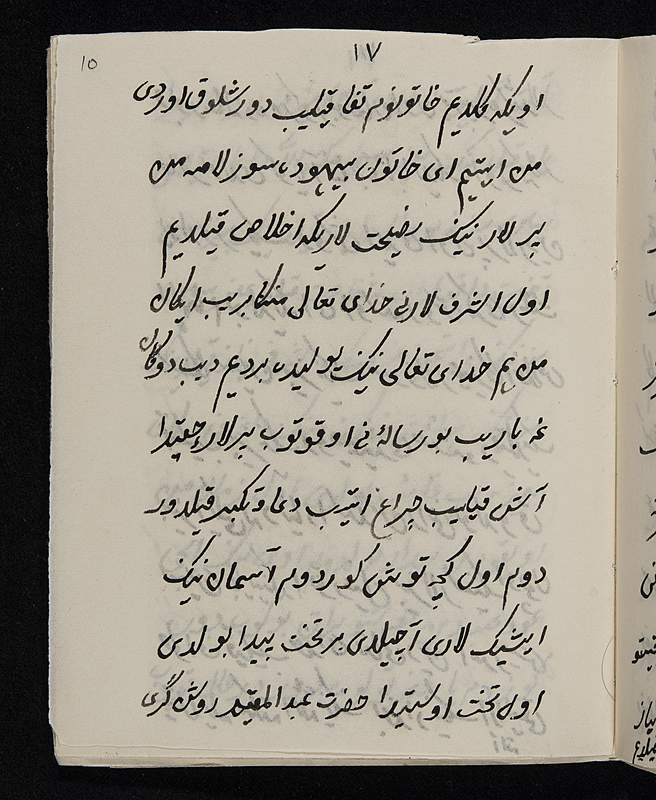 10
١٧
اویکه کلدیم خاتونوم تفا قیلیب دورشلوق اوردی
من ایتیم ای خاتون بیهوده سوزلامه من
پیرلارنینک نصیحت لاریکه اخلاص قیلدیم
اول اشرف لارنی خدای تعالی منکا بریب ایکان
من هم خدای تعالی نینک یولیده بردیم دیب دوکان
غه باریب بو رسالهٔ نی اوقوتوب پیرلار حقیدا
آش قیلیب چراغ ایتیب دعا و تکبیر قیلدور
دوم اول کیچه توش کوردوم آسمان نینک
ایشیک لاری آچیلدی بر تخت پیدا بولدی
اول تخت اوستیدا حضرت عبدالمقتدر روشن گری